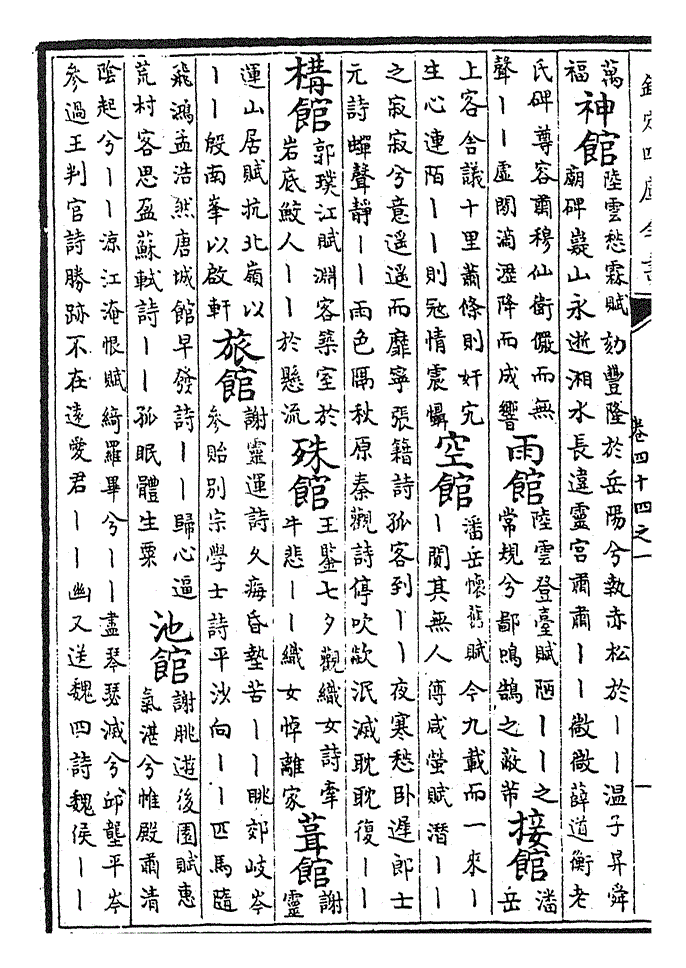 欽定四庫全書
卷四十四之一
萬
福
神館
陸雲愁霖賦劾豐隆於岳陽兮執赤松於丨丨温子昇舜
廟碑嶷山永逝湘水長違靈宫肅肅丨丨微微薛道衡老
氏碑尊容肅穆仙衛儼而無
聲丨丨虚閒滴瀝降而成響
雨館
陸雲登臺賦陋丨丨之
常規兮鄙鳴鵠之蔽芾
接館
潘
岳
上客舍議十里蕭條則奸宄
生心連陌丨丨則冦情震懾
空館
潘岳懷舊賦今九載而一來丨
丨闃其無人傅咸螢賦潛丨丨
之寂寂兮意遥遥而靡寧張籍詩孤客到丨丨夜寒愁卧遲郎士
元詩蟬聲静丨丨雨色隔秋原秦觀詩停吹歘泯滅耽耽復丨丨
構館
郭璞江賦淵客築室於
岩底鮫人丨丨於懸流
殊館
王鑒七夕觀織女詩牽
牛悲丨丨織女悼離家
葺館
謝
靈
運山居賦抗北嶺以
丨丨殷南峯以啟軒
旅館
謝靈運詩久痗昏墊苦丨丨眺郊岐岑
參貽别宗學士詩平沙向丨丨匹馬隨
飛鴻孟浩然唐城館早發詩丨丨歸心逼
荒村客思盈蘇軾詩丨丨孤眠體生粟
池館
謝朓遊後園賦惠
氣湛兮帷殿肅清
陰起兮丨丨凉江淹恨賦綺羅畢兮丨丨盡琴瑟滅兮邱壟平岑
參過王判官詩勝跡不在遠愛君丨丨幽又送魏四詩魏侯丨丨